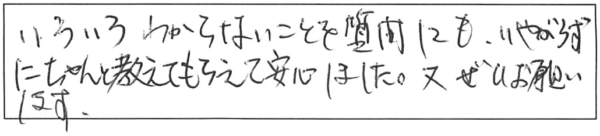 いろいろわからないことを質問にも、いやがらず
にちゃんと教えてもらえて安心しました。又ぜひお願い
します。